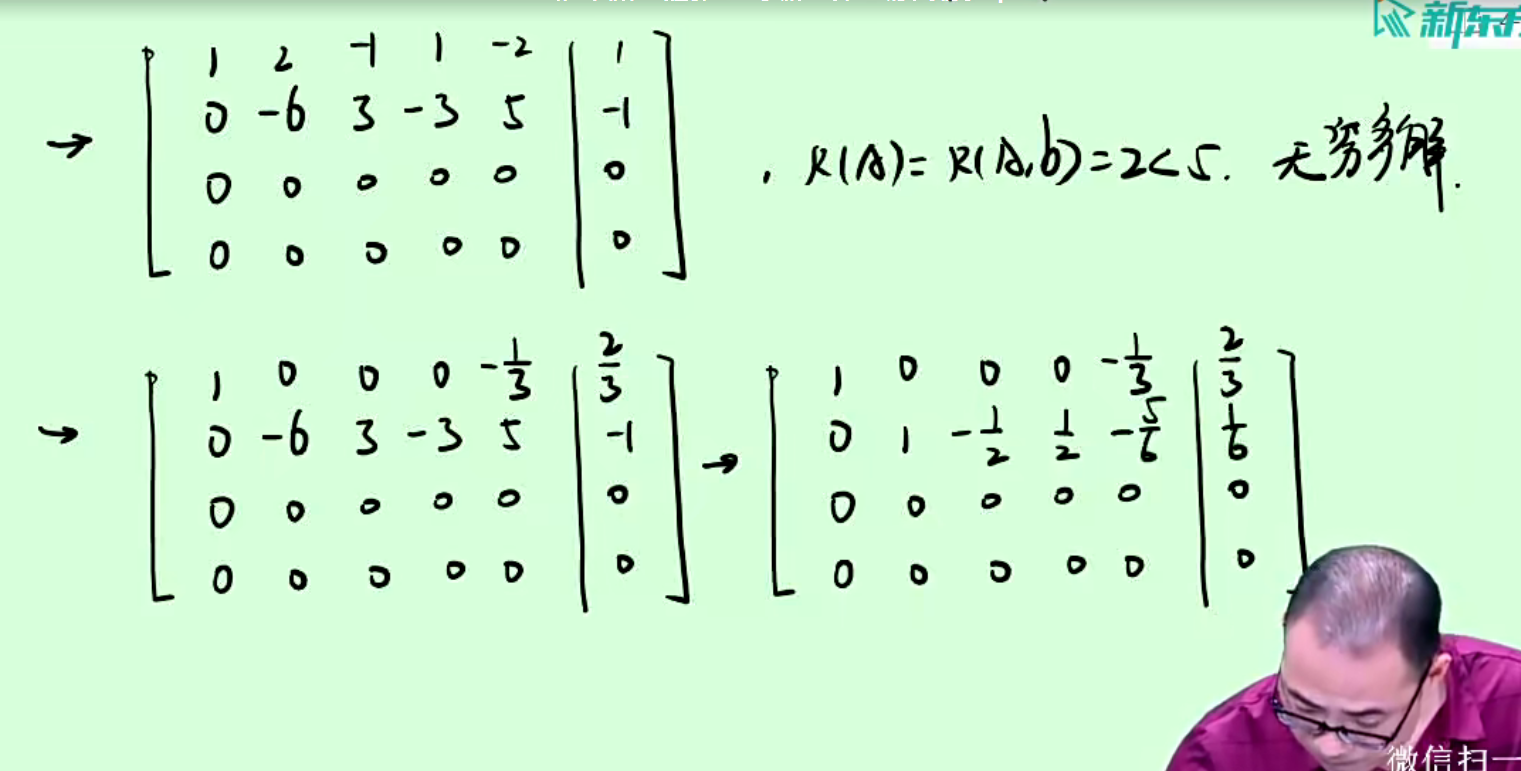 新东方
→ [ 1 2 -1 1 -2 | 1 ]
[ 0 -6 3 -3 5 | -1 ]
[ 0 0 0 0 0 | 0 ]
[ 0 0 0 0 0 | 0 ]
, R(A)=R(A,b)=2<5. 无穷多解.
→ [ 1 0 0 0 -1/3 | 2/3 ]
[ 0 -6 3 -3 5 | -1 ]
[ 0 0 0 0 0 | 0 ]
[ 0 0 0 0 0 | 0 ]
→ [ 1 0 0 0 -1/3 | 2/3 ]
[ 0 1 -1/2 1/2 -5/6 | 1/6 ]
[ 0 0 0 0 0 | 0 ]
[ 0 0 0 0 0 | 0 ]
微信扫一